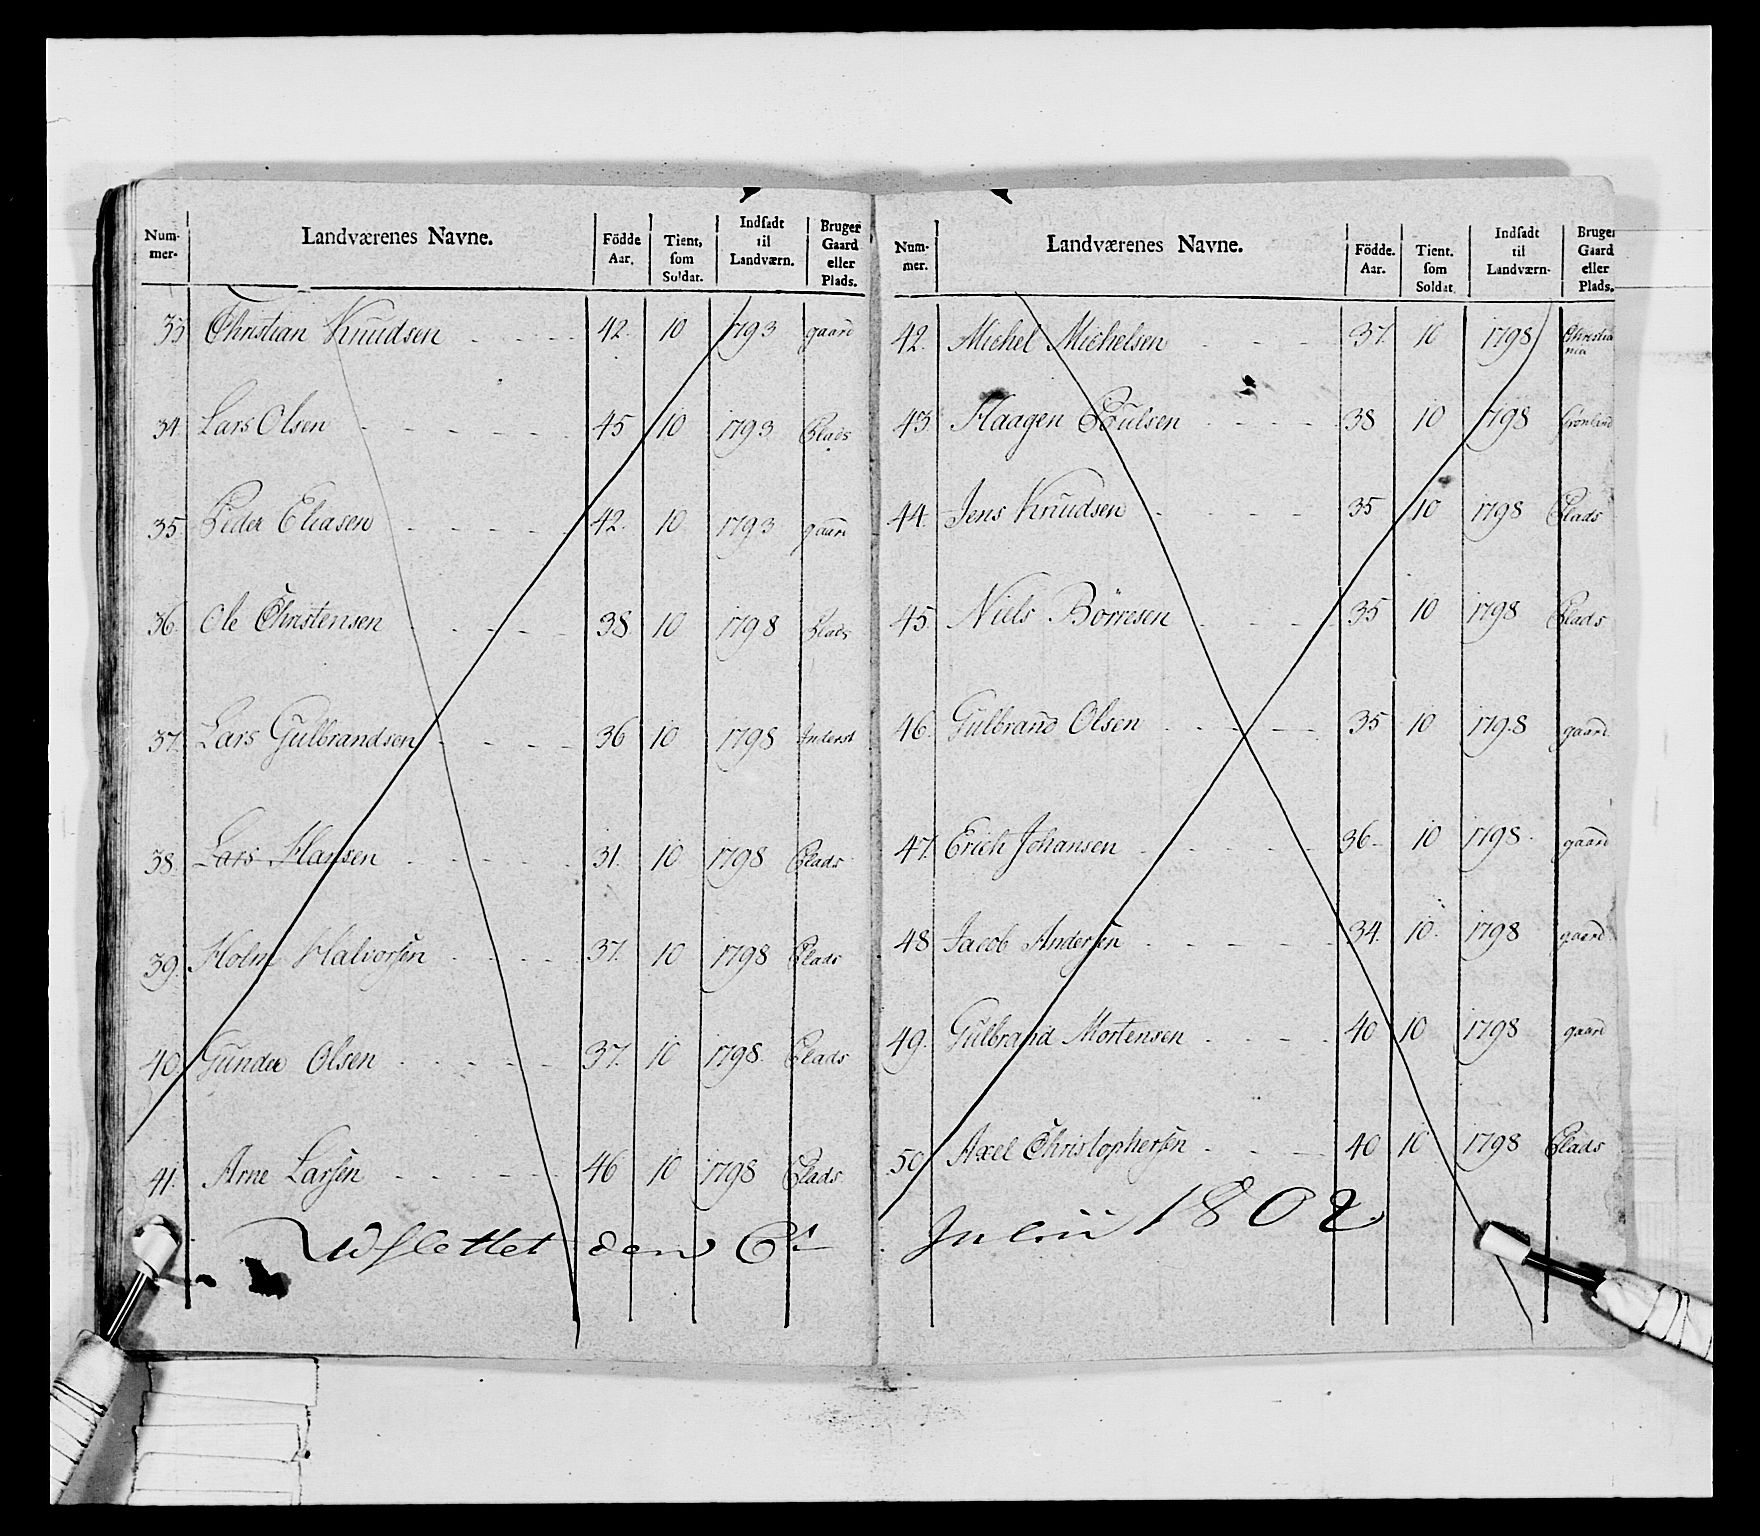 Num-
mer-
Landværenes Navne.
Födde
Aar.
Tient,
som
Soldat.
Indsadt
til
Landværn.
Bruger
Gaard
eller
Plads.
33 Christian Knudsen 42. 10 1793 gaard
34 Lars Olsen 45 10 1793 Plads
35 Peder Eliasen 42. 10 1793 gaard
36. Ole Christensen 38 10 1798 Plads
37. Lars Gulbrandsen 36 10 1798 Inderst
38. Lars Hansen 31. 10 1798 Plads
39. Holm Halvorsen 37. 10 1798 Plads
40 Gunder Olsen 37. 10 1798. Plads
41. Arne Larsen 46 10 1798 Plads
Udslettet den 6t
Num-
mer.
Landværenes Navne.
Födde.
Aar.
Tient.
som
Soldat
Indsadt
til
Landværn-
Bruger
Gaard
eller
Plads.
42. Michel Michelsen 37. 10 1798 Christia
nia
43. Haagen Poulsen 38 10 1798 Grønland
44. Jens Knudsen 35 10 1798 Plads
45. Niels Börresen 35 10 1798 Plads
46. Gulbrand Olsen 35 10 1798 gaard
47. Erich Johansen 36. 10 1798. gaard
48 Jacob Andersen 34. 10. 1798 gaard
49. Gulbrand Mortensen 40 10 1798 gaard
50 Axel Christophersen 40 10 1798 Plads
Julii 1802